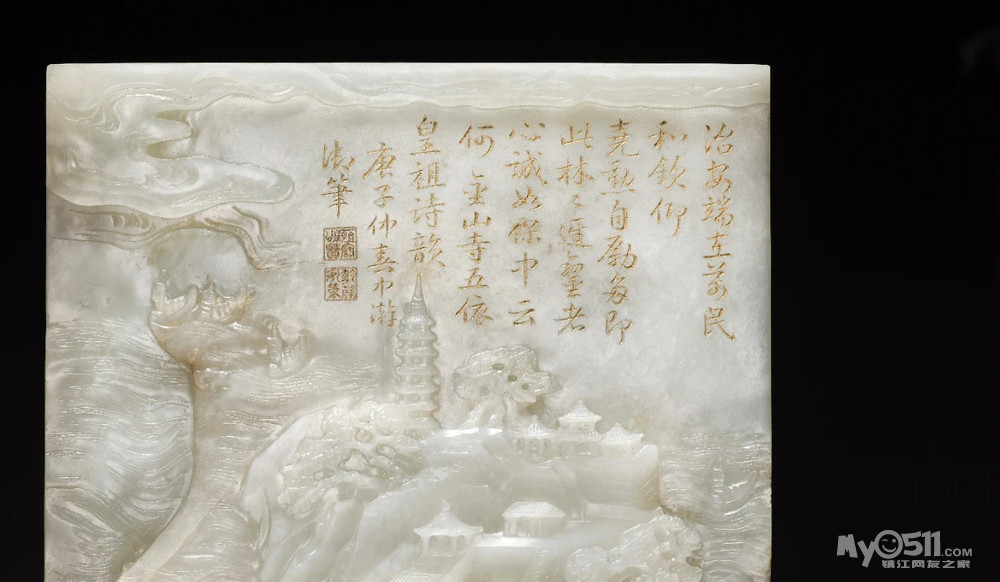 治安端在萬民
和欽仰
堯勳自勵多即
此林〻望者
心誠如保中云
何 金山寺五依
皇祖詩韻
庚子仲春中澣
御筆
My0511.com
镇江网友之家